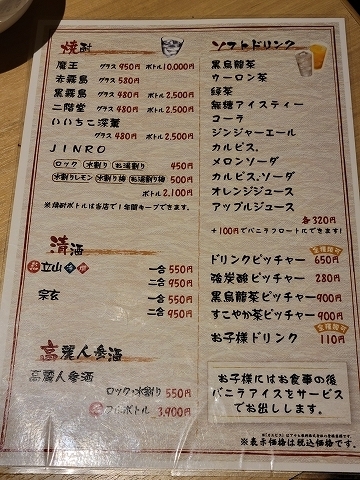 焼酎
魔王 グラス 950円 ボトル 10,000円
赤霧島 グラス 580円
黒霧島 グラス 480円 ボトル 2,500円
二階堂 グラス 480円 ボトル 2,500円
いいちこ深薫
グラス 480円 ボトル 2,500円
JINRO
ロック 水割り お湯割り 450円
水割りレモン 水割り梅 お湯割り梅 500円
ボトル 2,100円
※焼酎ボトルは当店で1年間キープできます。
清酒
立山 一合 550円
二合 950円
宗玄 一合 550円
二合 950円
高麗人参酒
高麗人参酒
ロック・水割り 550円
ボトル 3,900円
ソフトドリンク
黒烏龍茶
ウーロン茶
緑茶
無糖アイスティー
コーラ
ジンジャーエール
カルピス
メロンソーダ
カルピスソーダ
オレンジジュース
アップルジュース
各 320円
+100円でバニラフロートにできます!
ドリンクピッチャー 650円
強炭酸ピッチャー 280円
黒烏龍茶ピッチャー 900円
すこやか茶ピッチャー 900円
お子様ドリンク 110円
お子様にはお食事の後
バニラアイスをサービス
でお出しします。
※表示価格は税込価格です。